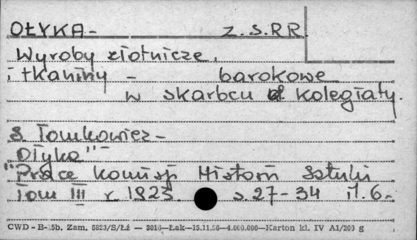 OŁYKA - Z.S.RR.
Wyroby złotnicze,
i tkaniny - barokowe
w skarbcu kolegiaty.
S. Tomkowicz -
"Ołyka"
"Prace Komisji Historii Sztuki
Tom III r. 1923. s. 27-34 il. 6.
CWD - B-15b. Zam. 5823/S/Łż — 2010—Łak—15.11.56—4.000.000—Karton kl. IV A1/200 g